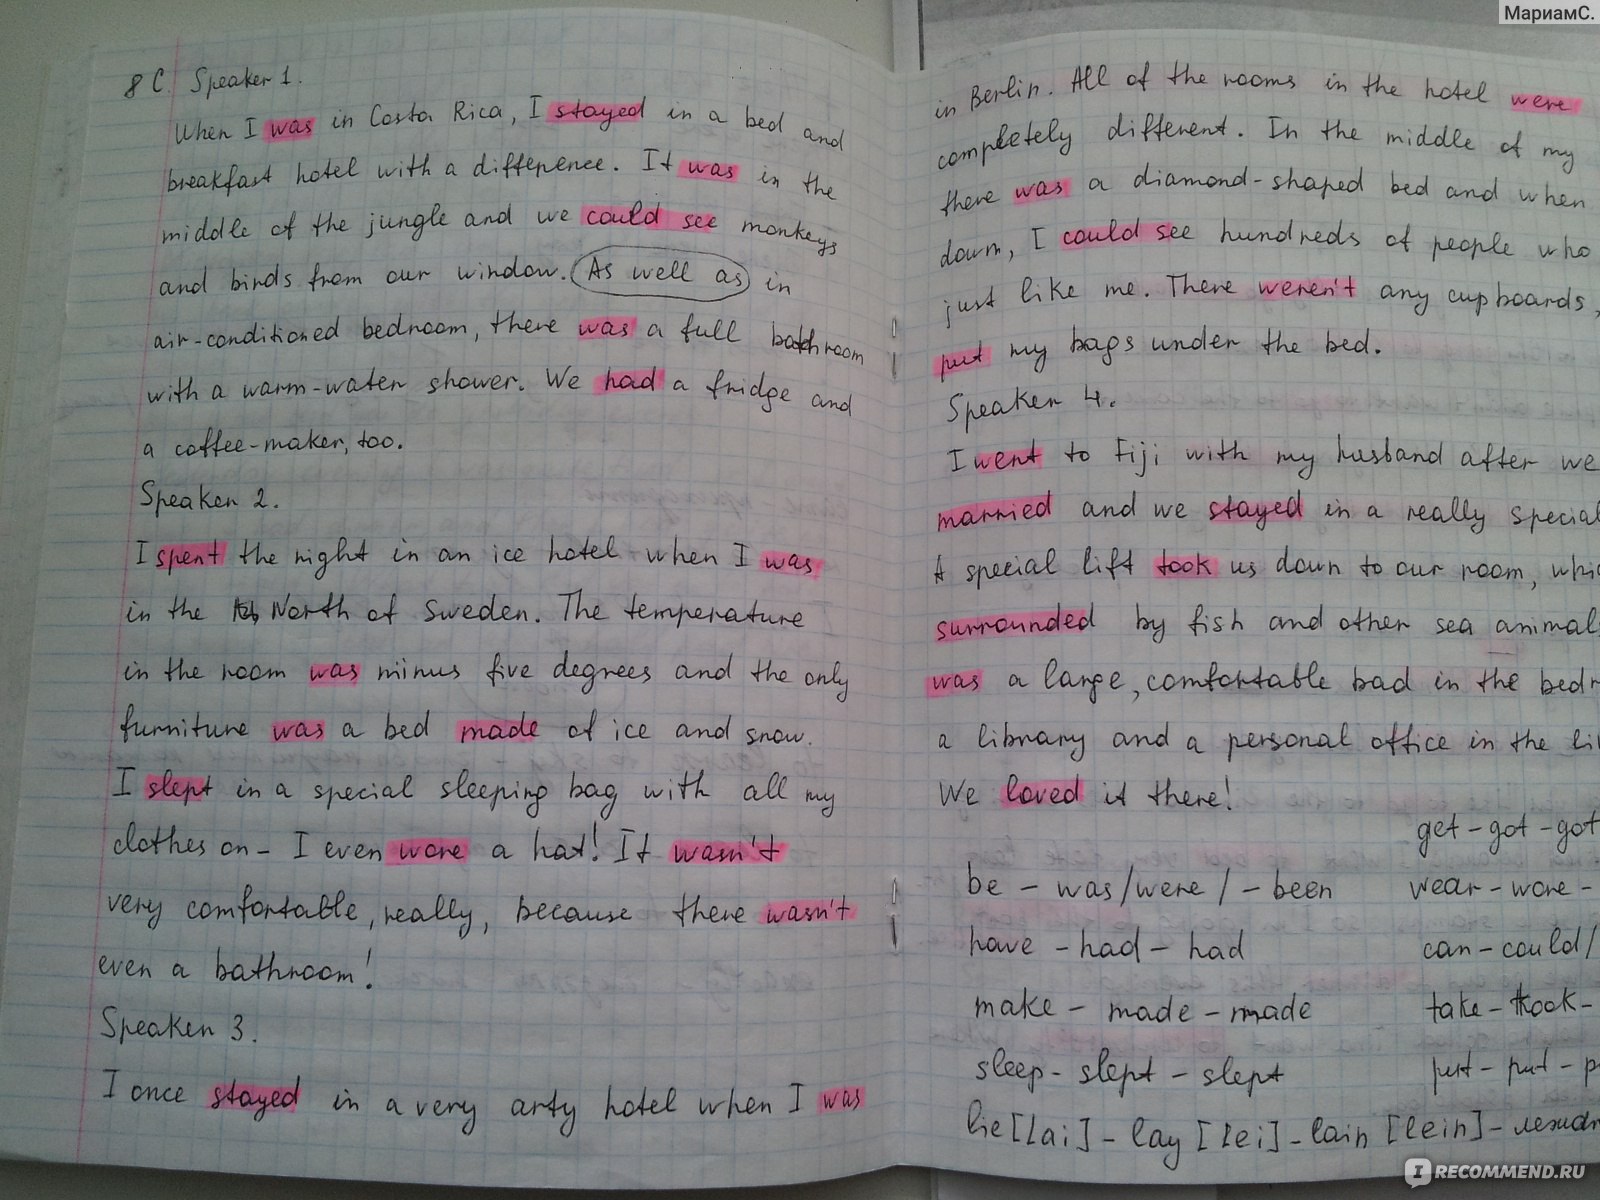 МариамС.
8 C. Speaker 1.
When I was in Costa Rica, I stayed in a bed and
breakfast hotel with a difference. It was in the
middle of the jungle and we could see monkeys
and birds from our window. As well as in
air-conditioned bedroom, there was a full bathroom
with a warm-water shower. We had a fridge and
a coffee-maker, too.
Speaker 2.
I spent the night in an ice hotel when I was
in the North of Sweden. The temperature
in the room was minus five degrees and the only
furniture was a bed made of ice and snow.
I slept in a special sleeping bag with all my
clothes on - I even wore a hat! It wasn't
very comfortable, really, because there wasn't
even a bathroom!
Speaker 3.
I once stayed in a very arty hotel when I was
in Berlin. All of the rooms in the hotel were
completely different. In the middle of my
there was a diamond-shaped bed and when
down, I could see hundreds of people who
just like me. There weren't any cupboards,
put my bags under the bed.
Speaker 4.
I went to Fiji with my husband after we
married and we stayed in a really special
A special lift took us down to our room, whic
surrounded by fish and other sea animals
was a large, comfortable bad in the bedr
a library and a personal office in the li
We loved it there!
get - got - got
be - was/were / - been wear - wore -
have - had - had can - could/
make - made - made take - took -
sleep - slept - slept put - put - p
lie [lai] - lay [lei] - lain [lein] - лежать
IRECOMMEND.RU